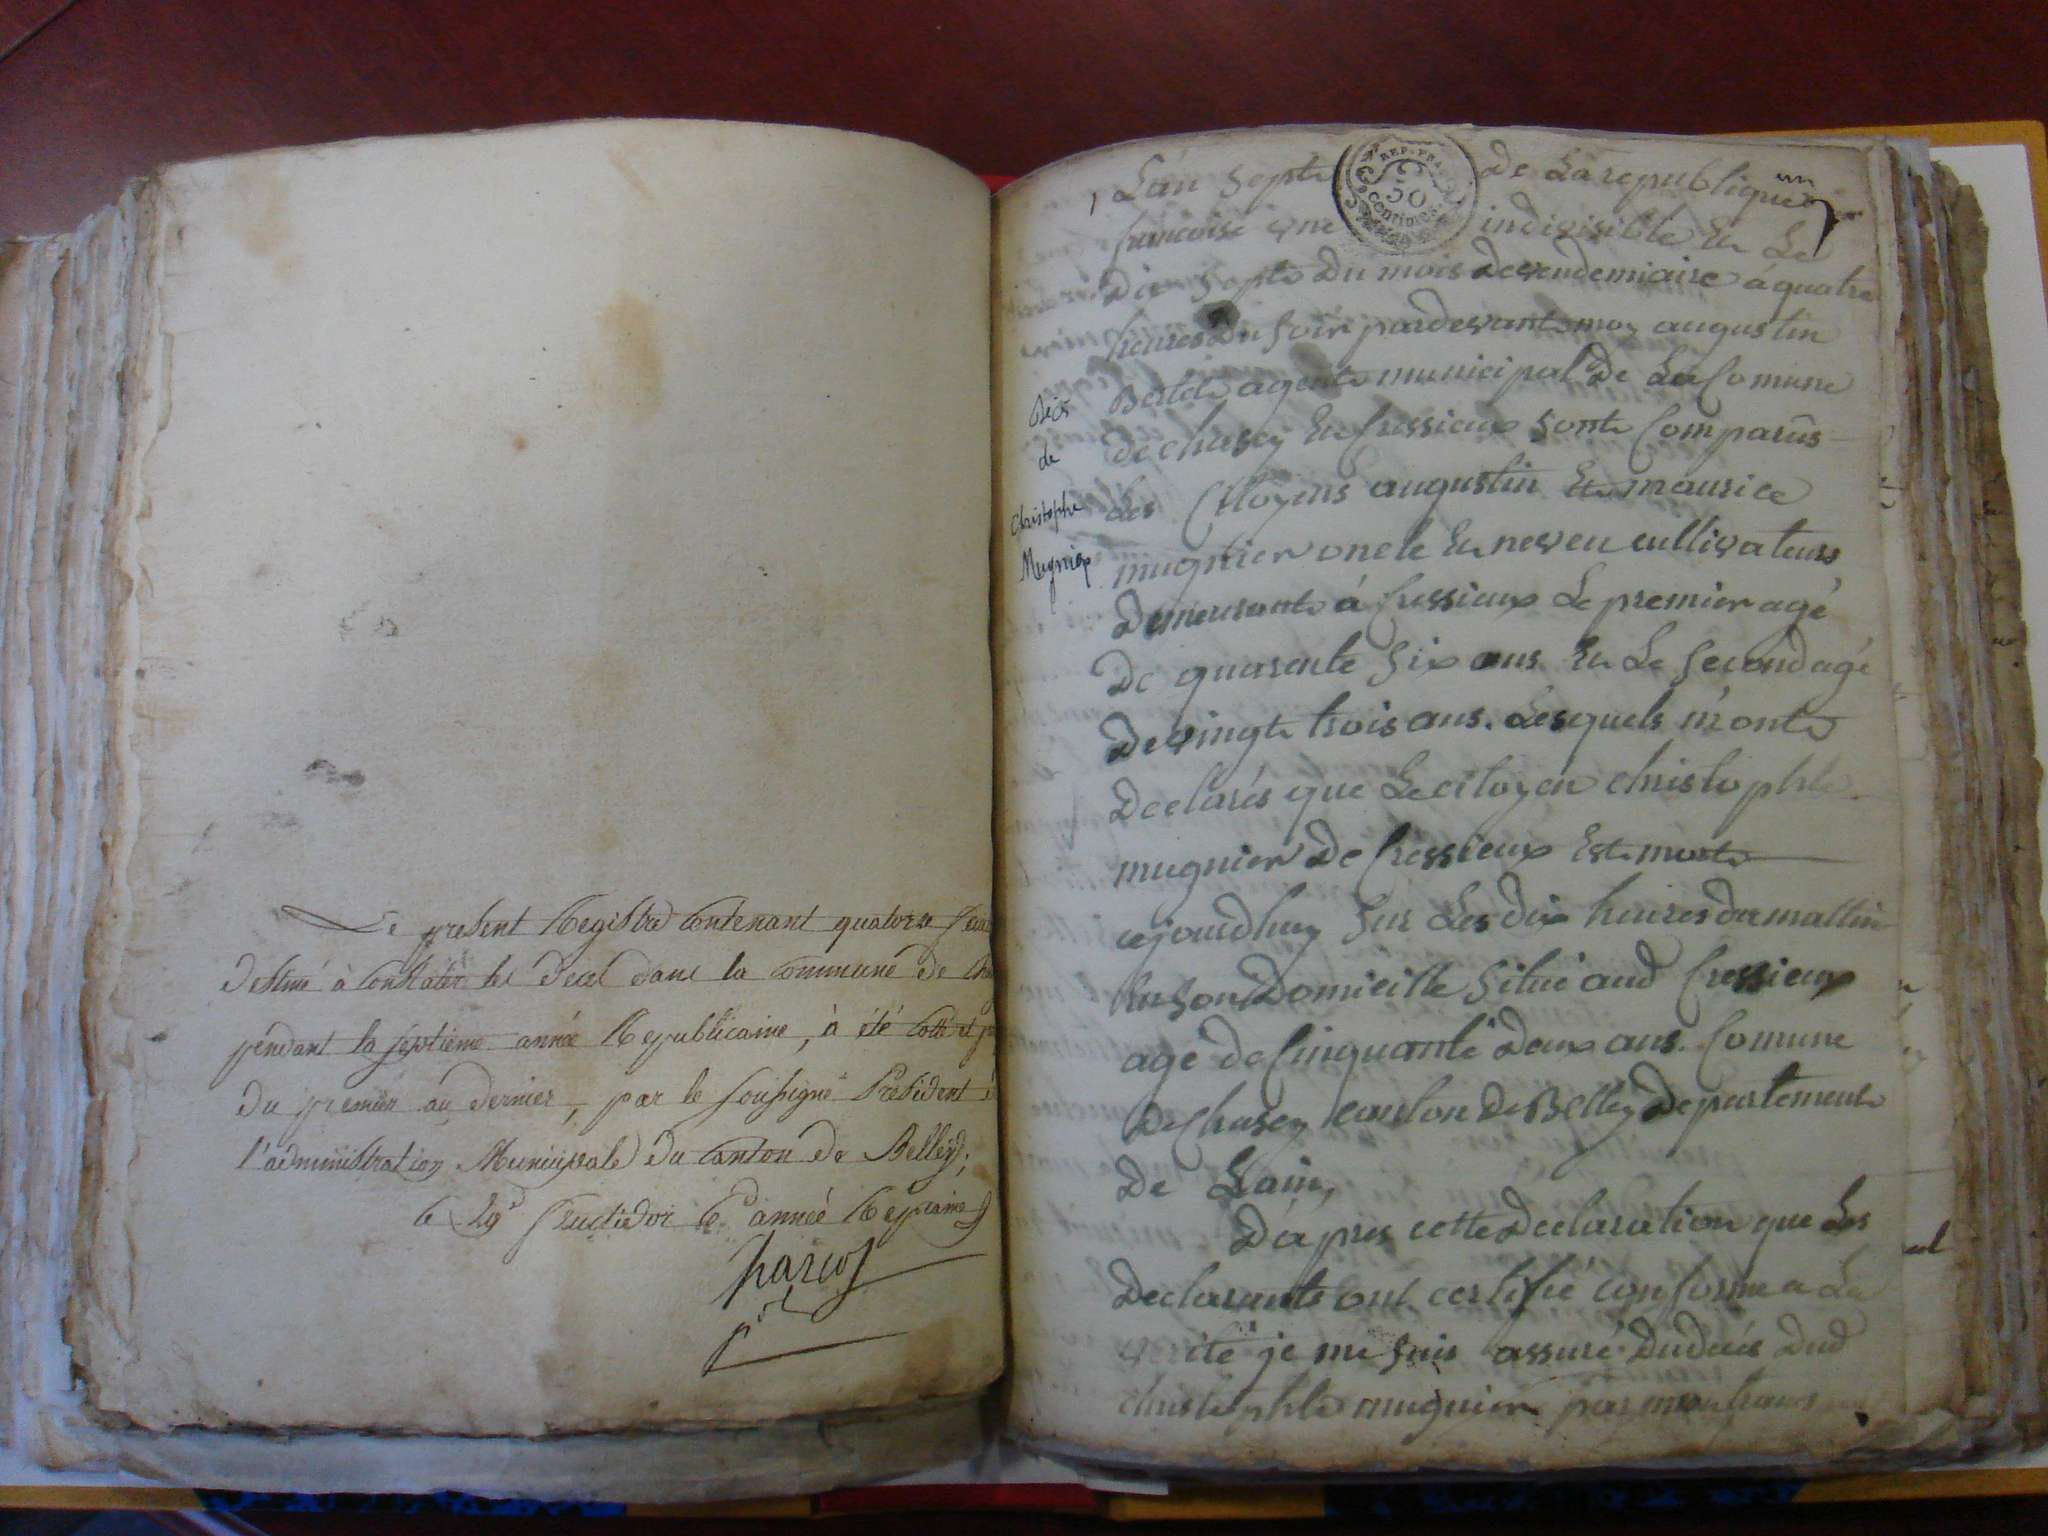 Le present Registre Contenant quatorze
destiné à Constater les décès dans la Commune de
pendant la septième année Republicaine, à été Cotté et
du premier au dernier, par le soussigné Président
l'administration Municipale du Canton de Belley;
le 29 fructidor 6e année Repcaine
REP. FRA.
50
Centimes
un
1 L'an Septe de La republique
francoise une indivisible Et Le
Dix Septe Du mois De vendemiaire á quatre
heures Du Soir pardevant moy augustin
agente municipal De La Comune
De chasey Et Cressieux Sonte Comparûs
Les Citoyens augustin Ete maurice
mugnier oncle Et neveu cultivateurs
Demeurante á Cressieux Le premier agé
De quarente Six ans Et Le Second agé
De vingte trois ans. Lesquels m'onte
Declarés que Le citoyen christophle
mugnier De Cressieux Este morte
cejourdhuy Sur Les Dix heures du mattin
En Son Domicille Situé aud Cressieux
agé de Cinquante Deux ans. Comune
De Chasey canton De Belley Departemente
De Lain,
D'apres cette Declaration que Les
Declarants ont certifié conforme a La
verité je me Suis assuré Du Decés Dud
christophle mugnier par mon trans
Décés
de
Christophe
Mugnier